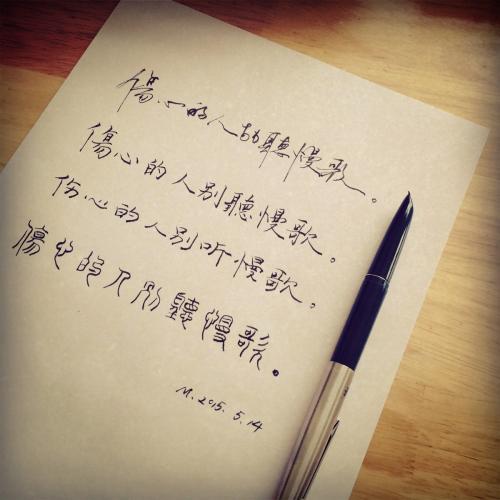 傷心的人劼聽慢歌。
傷心的人別聽慢歌。
伤心的人别听慢歌。
傷心的人別聽慢歌。
M. 2015. 5. 14